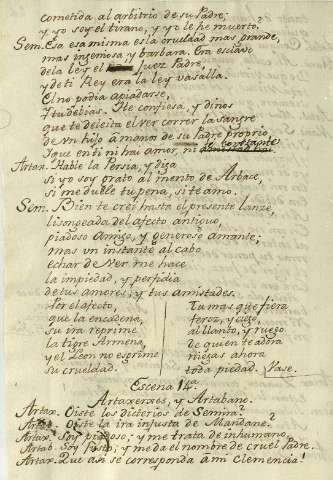 cometida al arbitrio de su Padre;
y yo soy el tirano, y yo le he muerto?
Sem. Esa esa misma es la crueldad mas grande,
mas ingeniosa y barbara. Era esclavo
de la ley el Juez Padre,
y de ti Rey era la ley vasalla.
El no podia apiadarse,
y tu debias. Ite confiesa, y dinos
que te deleita el ver correr la sangre
de un hijo â manos de su Padre proprio,
y que en ti ni hai amor, ni constante
Artax. Hable la Persia, y diga
si yo soy grato al merito de Arbace,
si me duele tu pena, si te amo.
Sem. Bien te creí hasta el presente lanze,
lisongeada del afecto antiguo,
piadoso amigo, y generoso amante;
mas un instante al cabo
echar de ver me hace
la impiedad, y perfidia
de tus amores, y tus amistades.
Por el afecto,
que la encadena,
su ira reprime
la tigre Armena,
y el Leon no esgrime
su crueldad.
Tu mas que fiera
feroz, y ciego,
al llanto, y ruego
de quien te adora
niegas ahora
toda piedad. Vase.
Escena 14ª
Artaxerxes, y Artabano.
Artax. Oiste los dicterios de Semira?
Artab. Oiste la ira injusta de Mandane?
Artax. Soy piadoso; y me trata de inhumano.
Artab. Soy justo; y me da el nombre de cruel Padre.
Artax. Que asi se corresponda â mi clemencia!